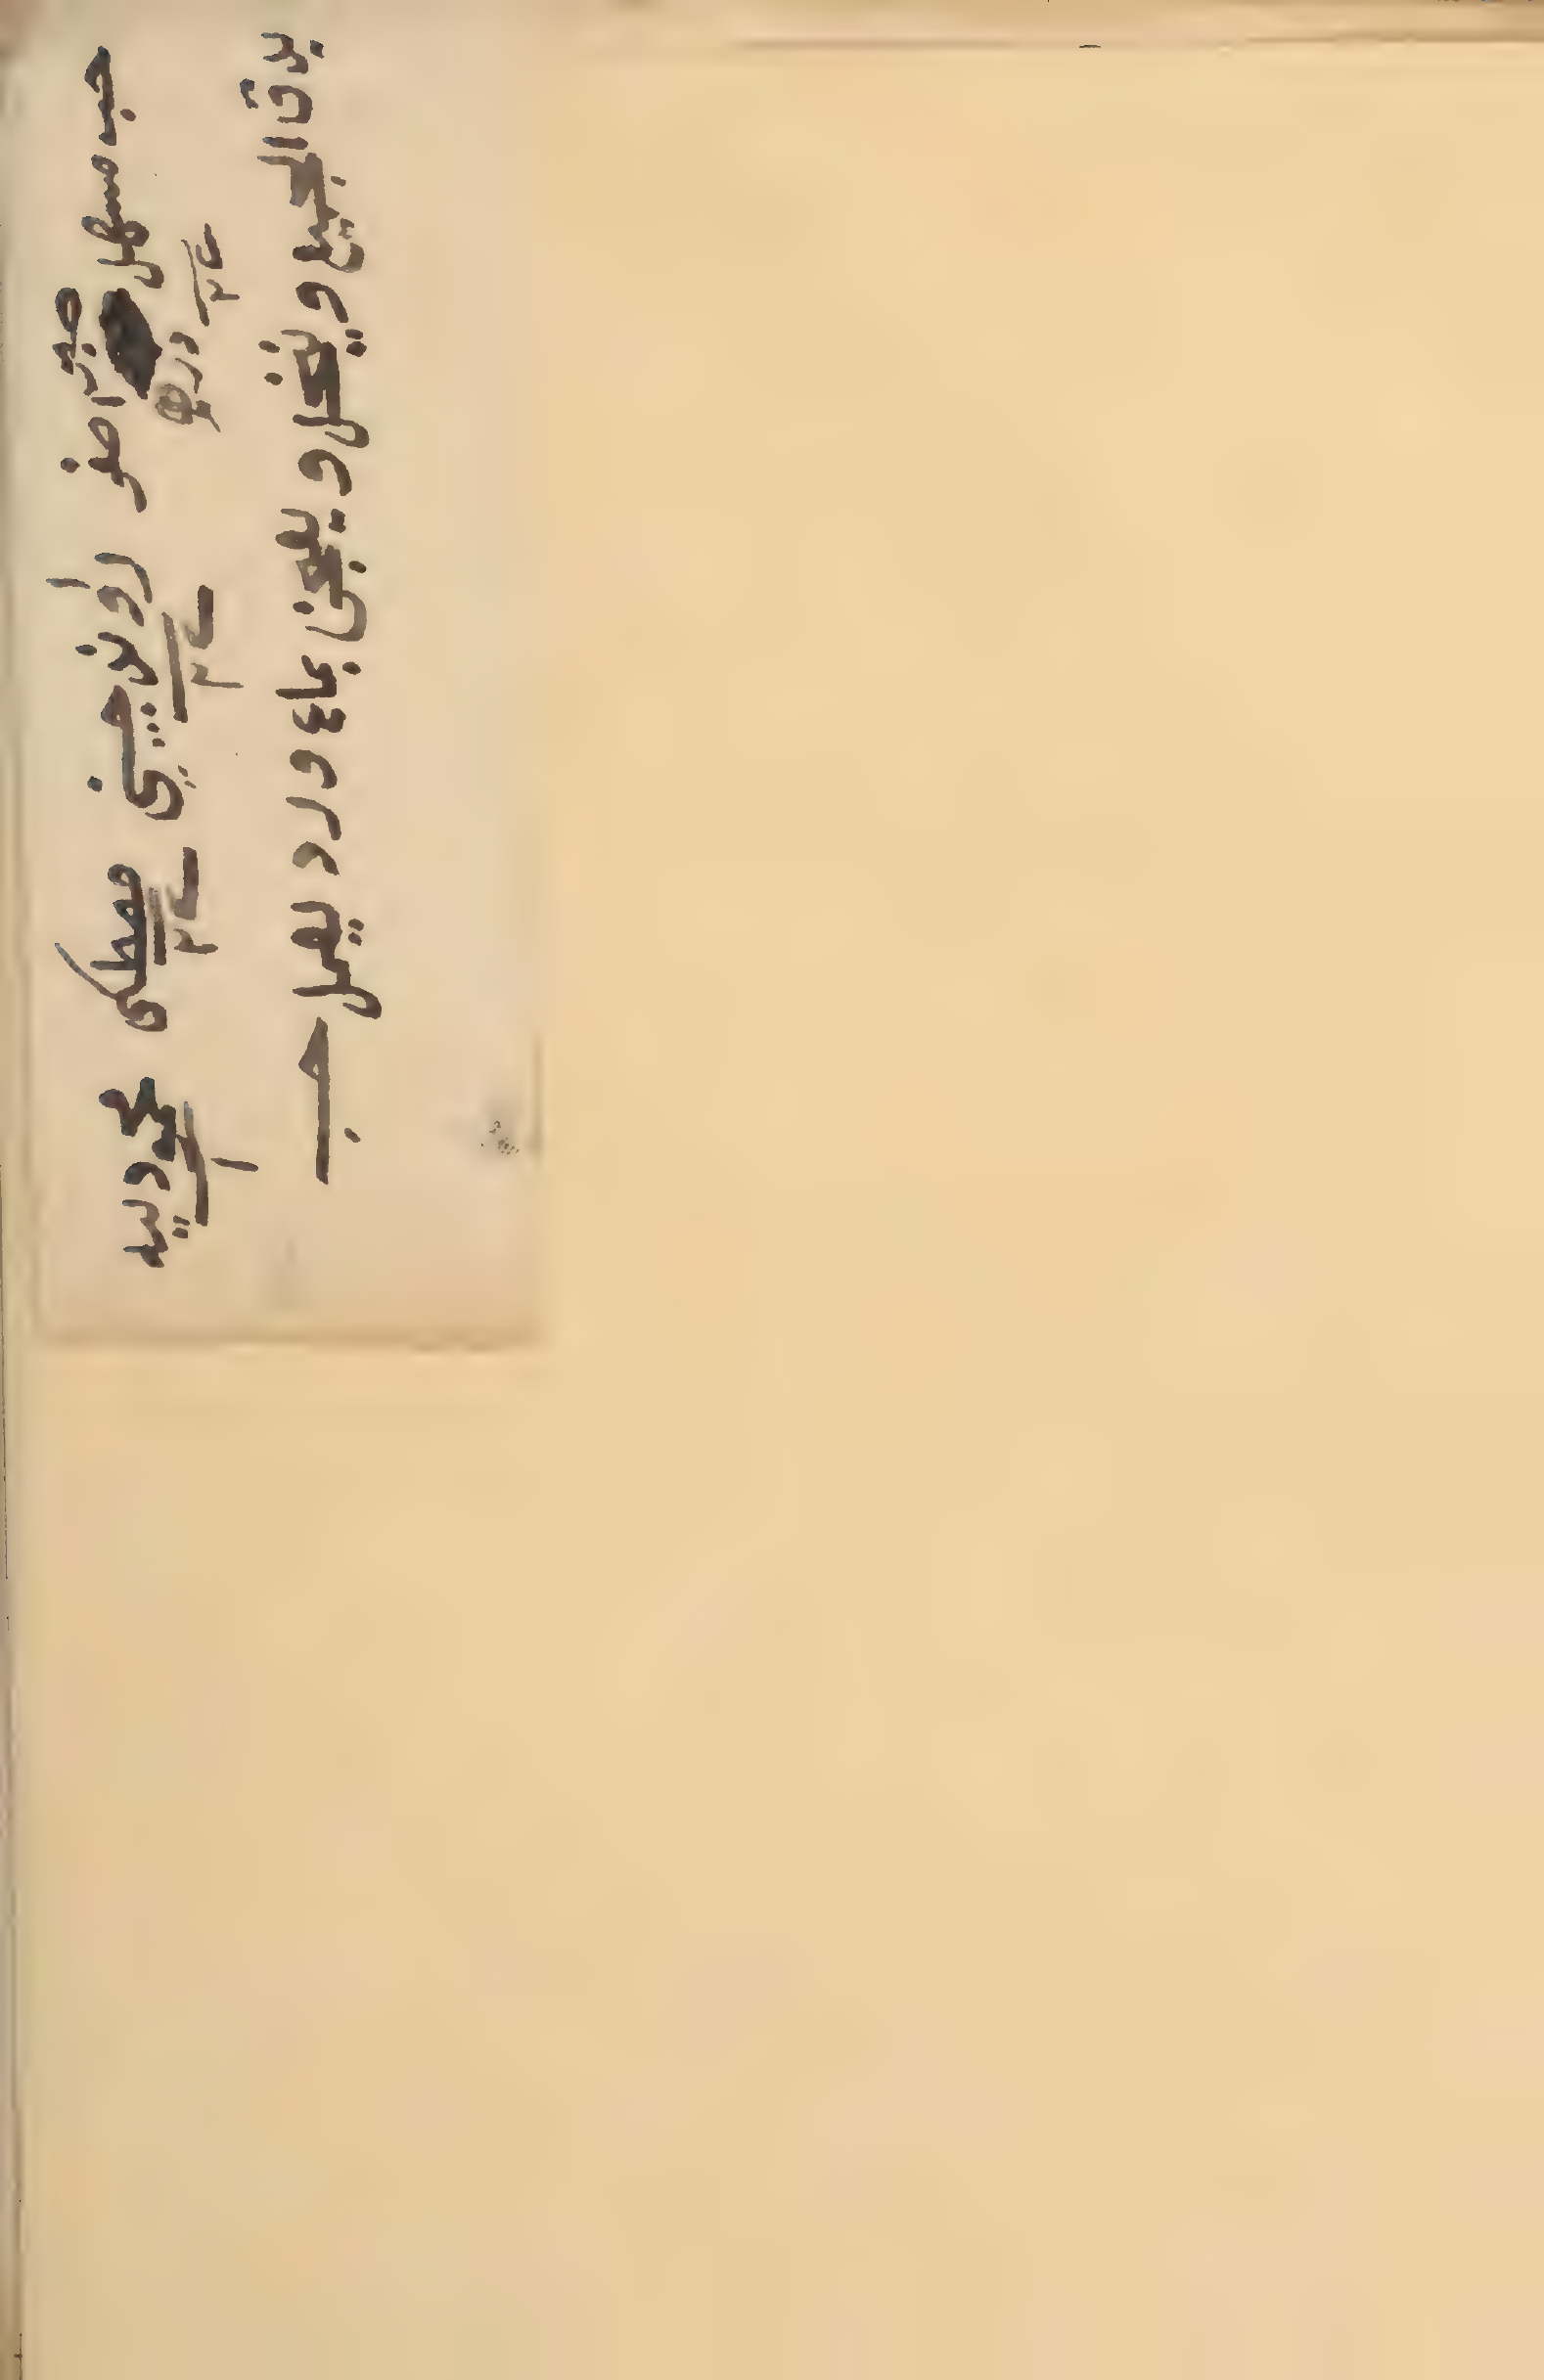 حب مسهل صبر اصفر راونذ چيني مصطكى
يدق الجميع وينخل ويعجن بماء ورد يعمل حب